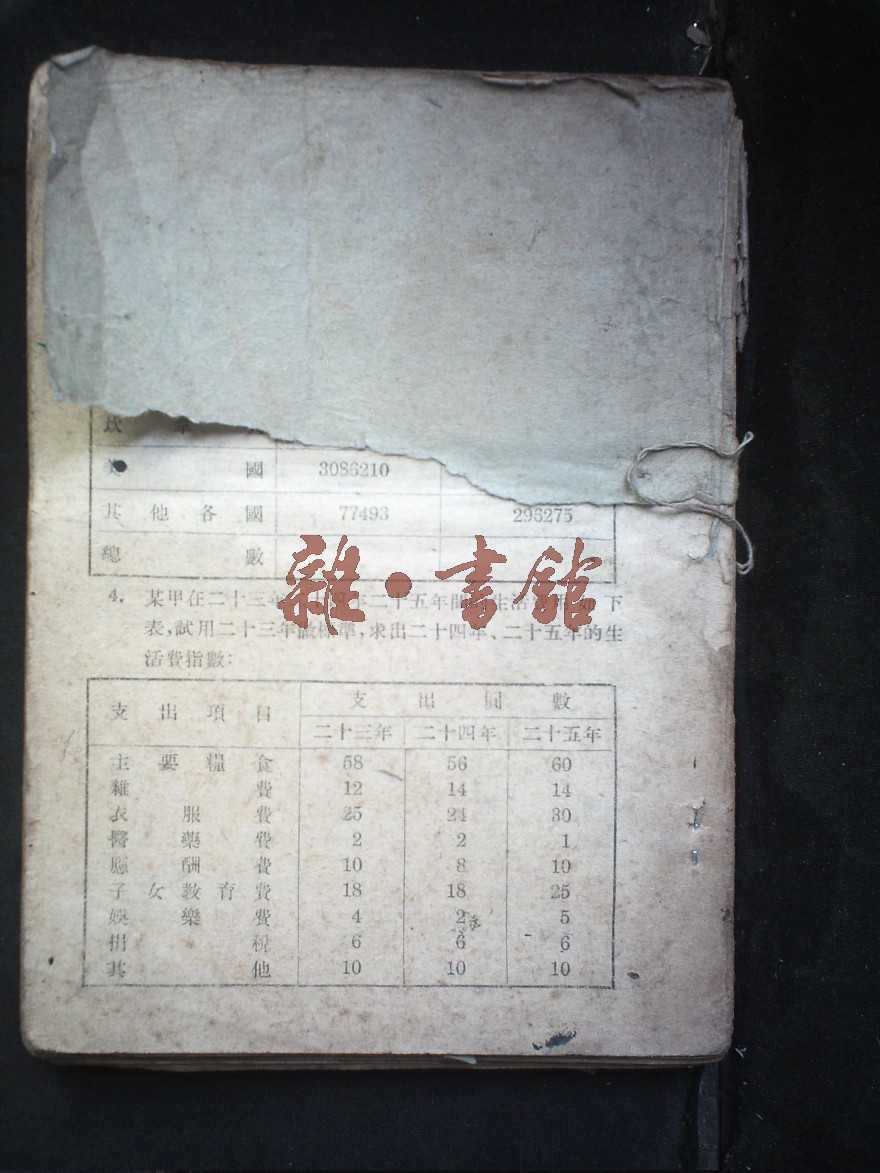 國 3086210
其他各國 77493 296275
總數
雜·書館
4. 某甲在二十三年 二十五年間 生活 如下
表,試用二十三年做標準,求出二十四年、二十五年的生
活費指數:
支出項目 支出圓數
二十三年 二十四年 二十五年
主要糧食 58 56 60
雜費 12 14 14
衣服費 25 24 30
醫藥費 2 2 1
應酬費 10 8 10
子女教育費 18 18 25
娛樂費 4 2 5
捐稅 6 6 6
其他 10 10 10